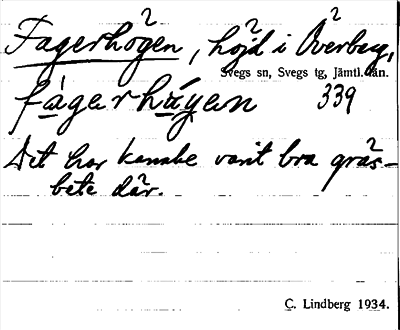 Fagerhögen, höjd i Överberg,
Svegs sn, Svegs tg, Jämtl. län.
fàgerhúgen 339
Det har kanske varit bra gräs-
bete där.
C. Lindberg 1934.